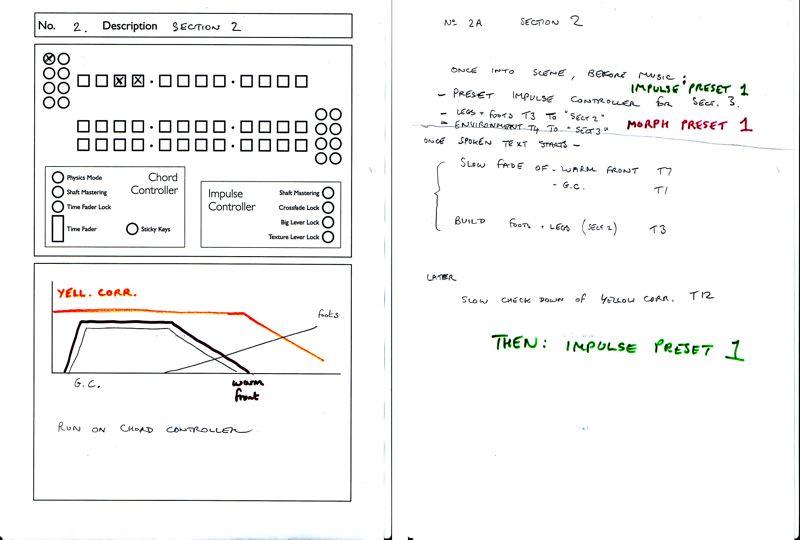 No. 2. Description SECTION 2
Physics Mode
Shaft Mastering
Time Fader Lock
Time Fader
Sticky Keys
Chord
Controller
Impulse
Controller
Shaft Mastering
Crossfade Lock
Big Lever Lock
Texture Lever Lock
YELL. CORR.
foots
G.C.
warm
front
RUN ON CHORD CONTROLLER
No 2A SECTION 2
ONCE INTO SCENE, BEFORE MUSIC:
IMPULSE PRESET 1
- PRESET IMPULSE CONTROLLER FOR SECT. 3.
- LEGS + FOOTS T3 TO "SECT 2"
- ENVIRONMENT T4 TO "SECT 3" MORPH PRESET 1
ONCE SPOKEN TEXT STARTS -
SLOW FADE OF - WARM FRONT T7
- G.C. T1
BUILD FOOTS + LEGS (SECT 2) T3
LATER
SLOW CHECK DOWN OF YELLOW CORR. T12
THEN: IMPULSE PRESET 1